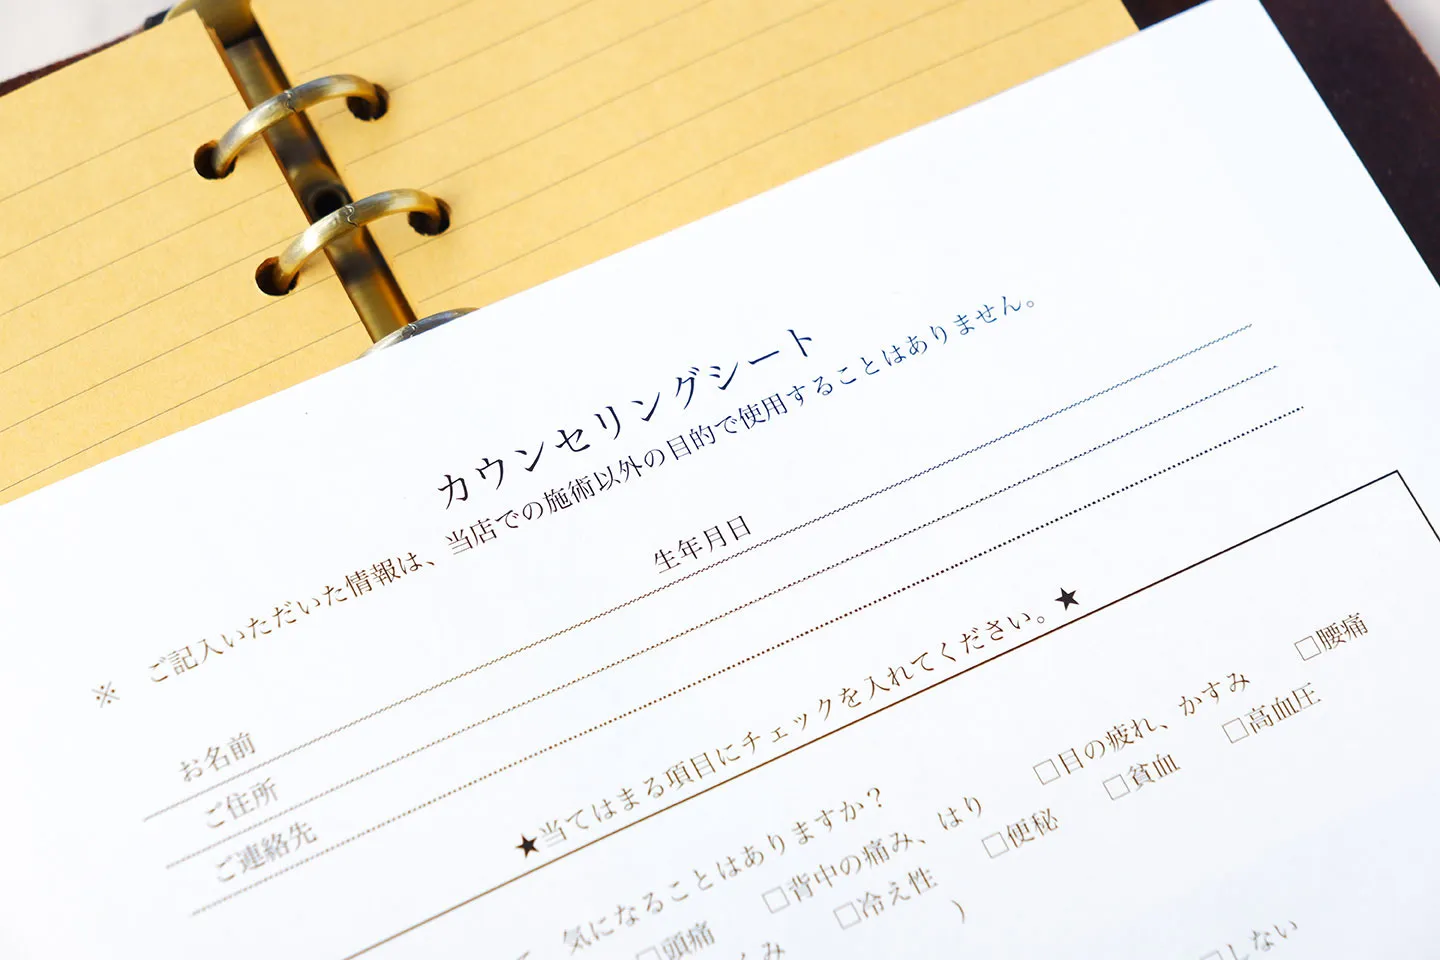 カウンセリングシート
※ ご記入いただいた情報は、当店での施術以外の目的で使用することはありません。
お名前 生年月日
ご住所
ご連絡先
★当てはまる項目にチェックを入れてください。★
気になることはありますか？
□頭痛 □背中の痛み、はり □目の疲れ、かすみ □腰痛
み □冷え性 □便秘 □貧血 □高血圧
）
□しない